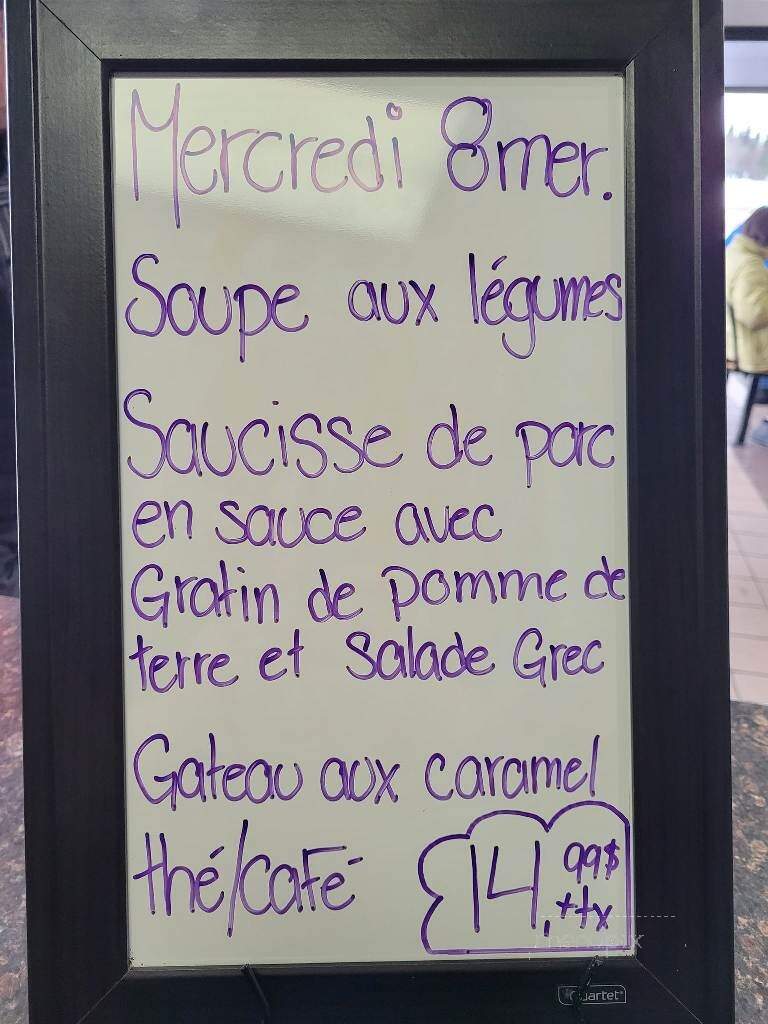 Mercredi 8 mer.
Soupe aux légumes
Saucisse de porc
en sauce avec
Gratin de pomme de
terre et Salade Grec
Gateau aux caramel
thé/café 14,99$
+tx
Quartet